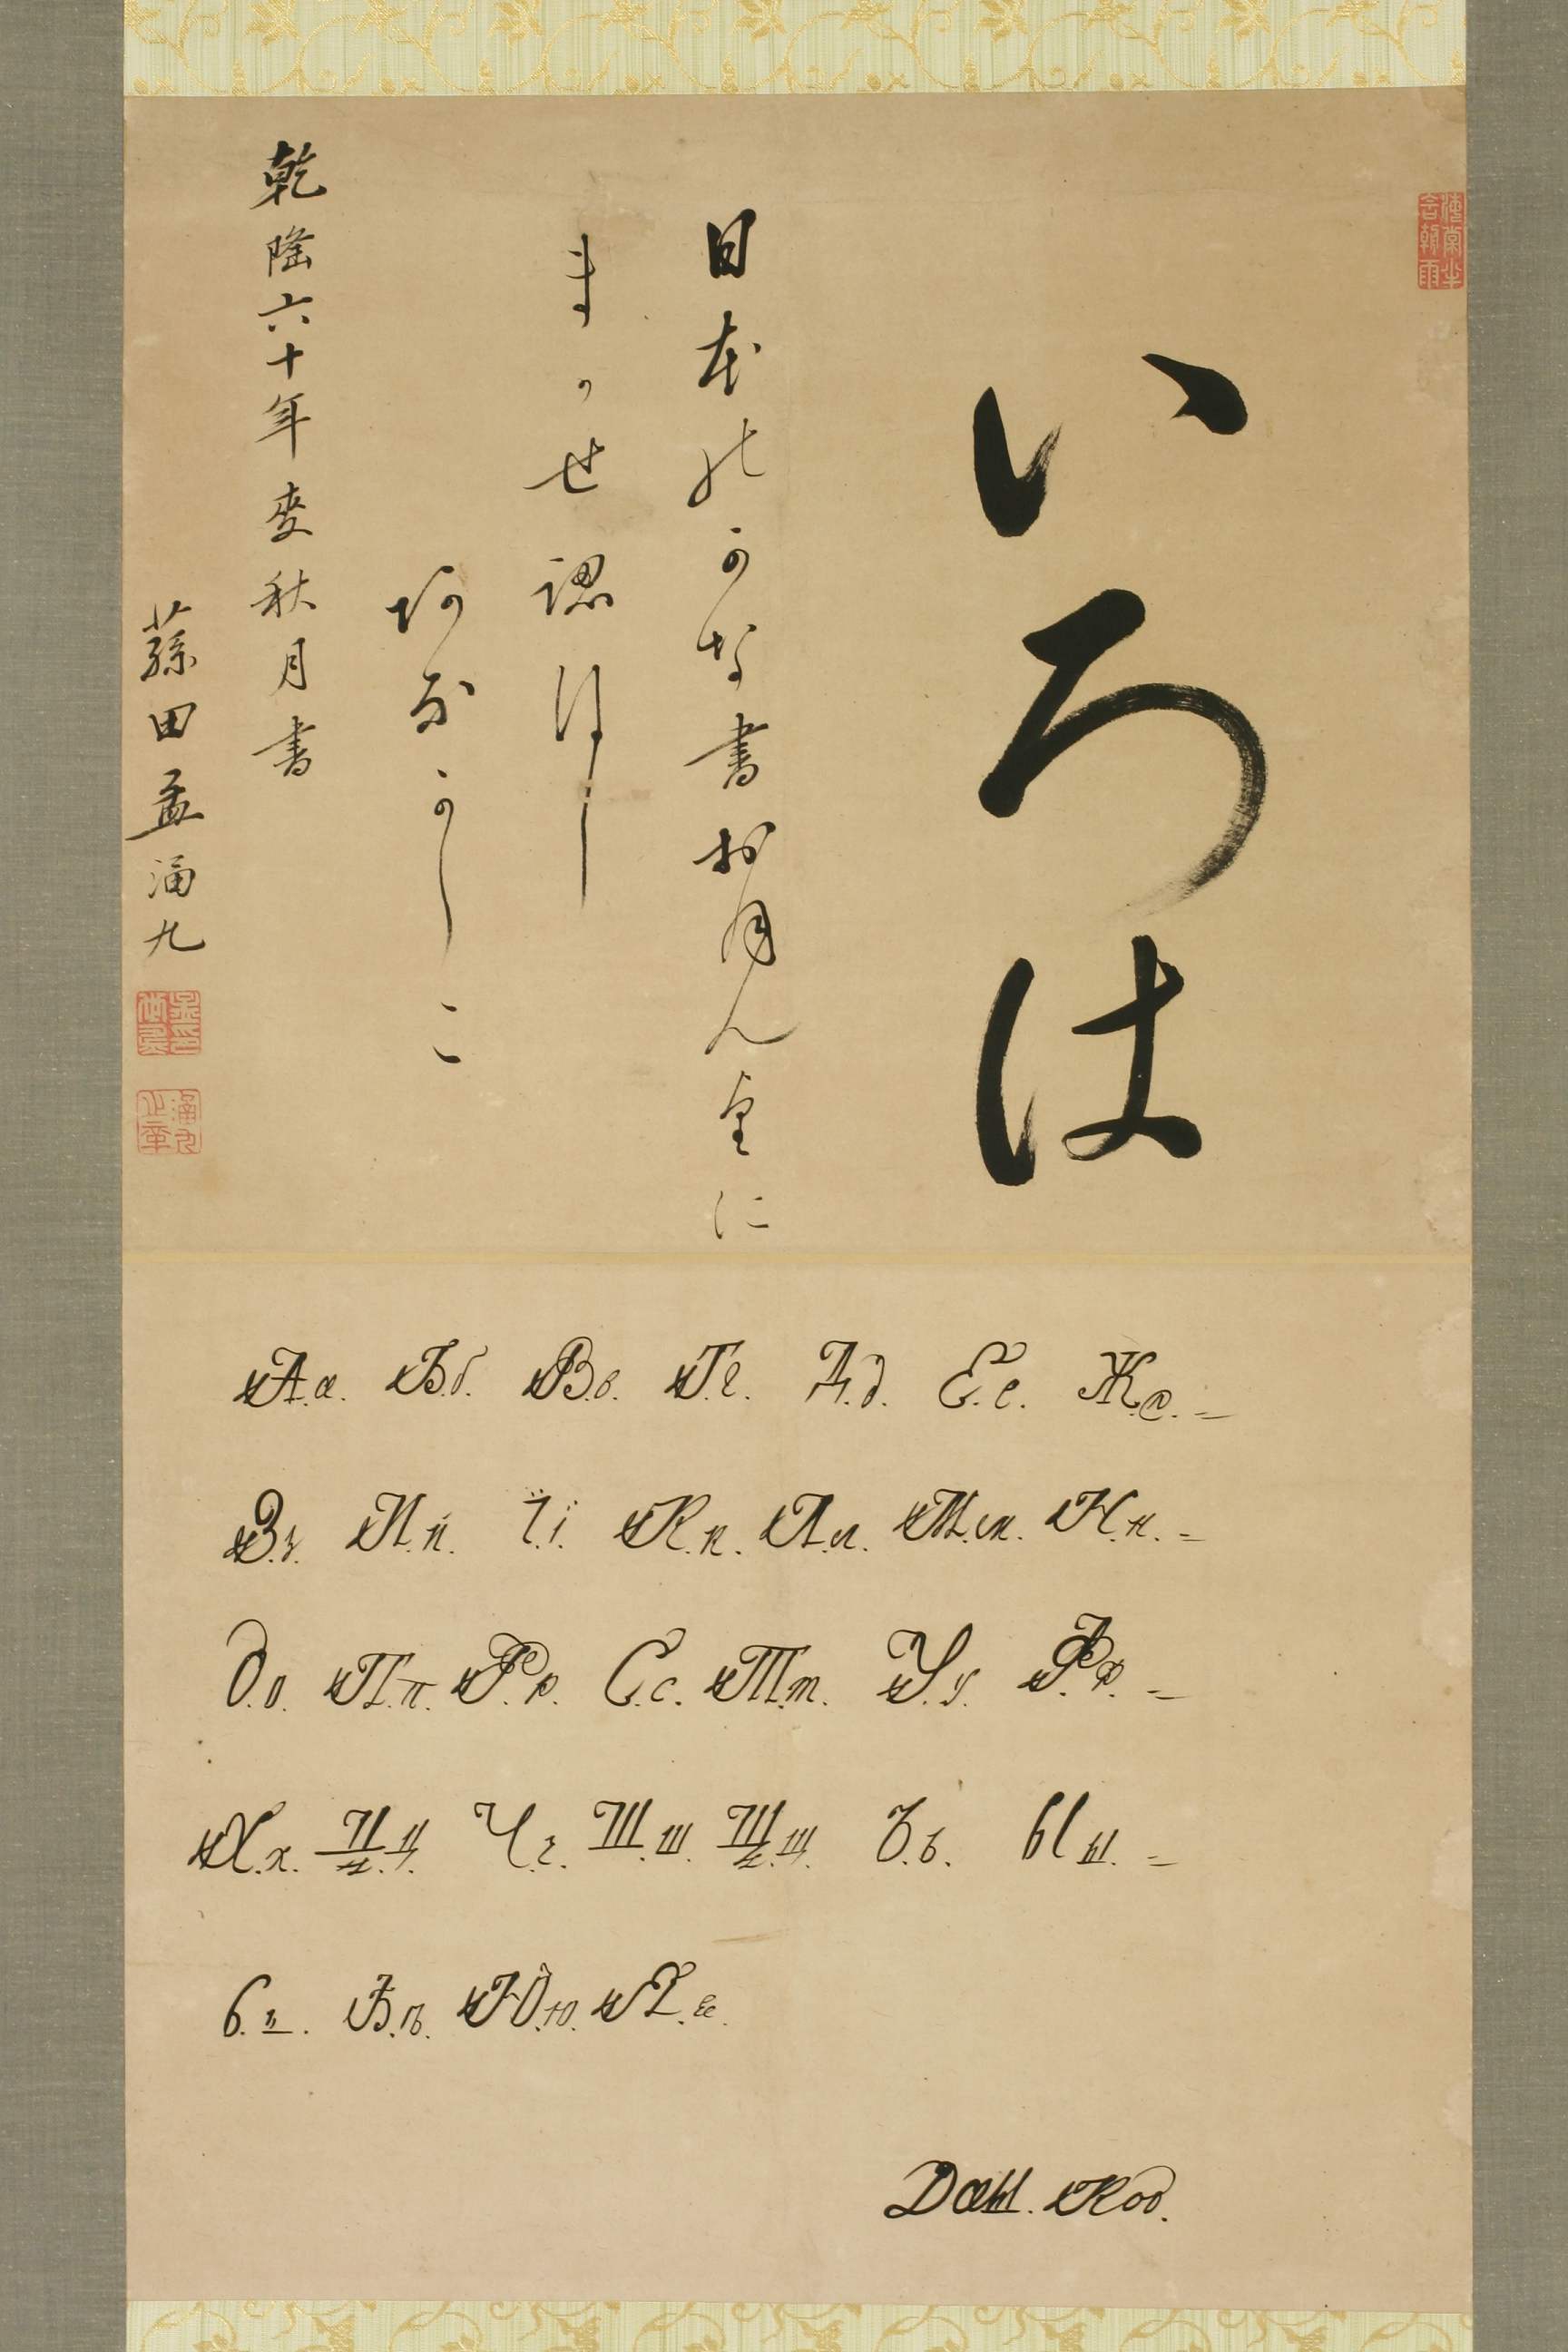 いろは
日本のかな書お に
まかせ認
阿なかしこ
乾隆六十年麦秋月書
蓀田孟涵九
А.а. Б.б. В.в. Г.г. Д.д. Е.е. Ж.ж. =
З.з. И.и. Ї.ї. К.к. Л.л. М.м. Н.н. =
О.о. П.п. Р.р. С.с. Т.т. У.у. Ф.ф. =
Х.х. Ц.ц. Ч.ч. Ш.ш. Щ.щ. Ъ.ъ. Ы.ы. =
Ь.ь. Ѣ.ѣ. Ю.ю. Я.я.
Код.